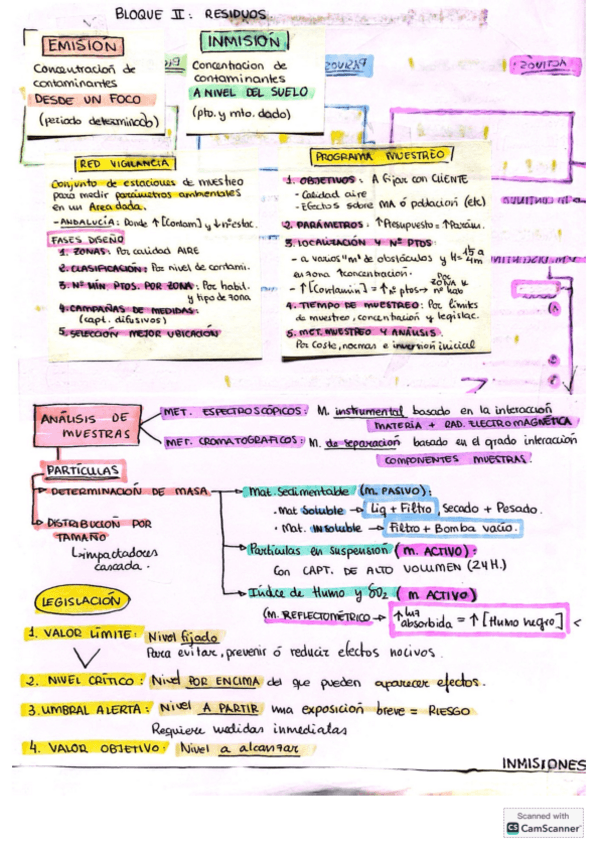 BLOQUE II: RESIDUOS
EMISION
Concentración de
contaminantes
DESDE UN FOCO
(periodo determinado)
INMISIÓN
Concentracion de
contaminantes
A NIVEL DEL SUELO
(pto. y mto. dado)
RED VIGILANCIA
Conjunto de estaciones de muestreo
para medir parámetros ambientales
en un Area dada.
- ANDALUCÍA: Donde ↑[Contam] y ↓nº estac.
FASES DISEÑO
1. ZONAS: Por calidad AIRE
2. CLASIFICACIÓN: Por nivel de contami.
3. Nº MIN. PTOS. POR ZONA: Por habit.
y tipo de zona
4. CAMPAÑAS DE MEDIDAS:
(capt. difusivos)
5. SELECCIÓN MEJOR UBICACIÓN
PROGRAMA MUESTREO
1. OBJETIVOS: A fijar con CLIENTE
- Calidad aire
- Efectos sobre MA ó poblacion (etc)
2. PARÁMETROS: ↑Presupuesto = ↑Parám.
3. LOCALIZACIÓN Y Nº PTOS
- a varios "m" de obstáculos y H = 1,5 a 4m
en zona ↑concentración.
- ↑[Contamin] = ↑nº ptos → Por ZONA y nº hab
4. TIEMPO DE MUESTREO: Por límites
de muestreo, concentración y legislac.
5. MET. MUESTREO Y ANÁLISIS
Por coste, normas e inversión inicial
ANÁLISIS DE
MUESTRAS
MET. ESPECTROSCÓPICOS: M. instrumental basado en la interacción
MATERIA + RAD. ELECTROMAGNÉTICA
MET. CROMATOGRAFICOS: M. de separación basado en el grado interacción
COMPONENTES MUESTRAS.
PARTÍCULAS
DETERMINACIÓN DE MASA
Mat. Sedimentable (M. PASIVO):
· Mat Soluble → Liq + Filtro, Secado + Pesado.
· Mat. INsoluble → Filtro + Bomba vacio.
DISTRIBUCIÓN POR
TAMAÑO
Impactadores
cascada.
Partículas en suspensión (M. ACTIVO):
Con CAPT. DE ALTO VOLUMEN (24H.)
Índice de Humo y SO2 (M ACTIVO)
(M. REFLECTOMÉTRICO → ↑ luz absorbida = ↑ [Humo negro]
LEGISLACIÓN
1. VALOR LÍMITE: Nivel fijado
Para evitar, prevenir ó reducir efectos nocivos.
2. NIVEL CRÍTICO: Nivel POR ENCIMA del que pueden aparecer efectos.
3. UMBRAL ALERTA: Nivel A PARTIR una exposición breve = RIESGO
Requiere medidas inmediatas
4. VALOR OBJETIVO: Nivel a alcanzar
INMISIONES
Scanned with
CS CamScanner